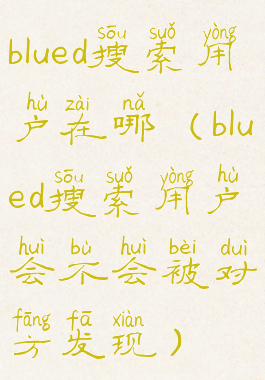 sōu suǒ yòng
blued搜索用
hù zài nǎ
户在哪（blu
sōu suǒ yòng hù
ed搜索用户
huì bù huì bèi duì
会不会被对
fāng fā xiàn
方发现）